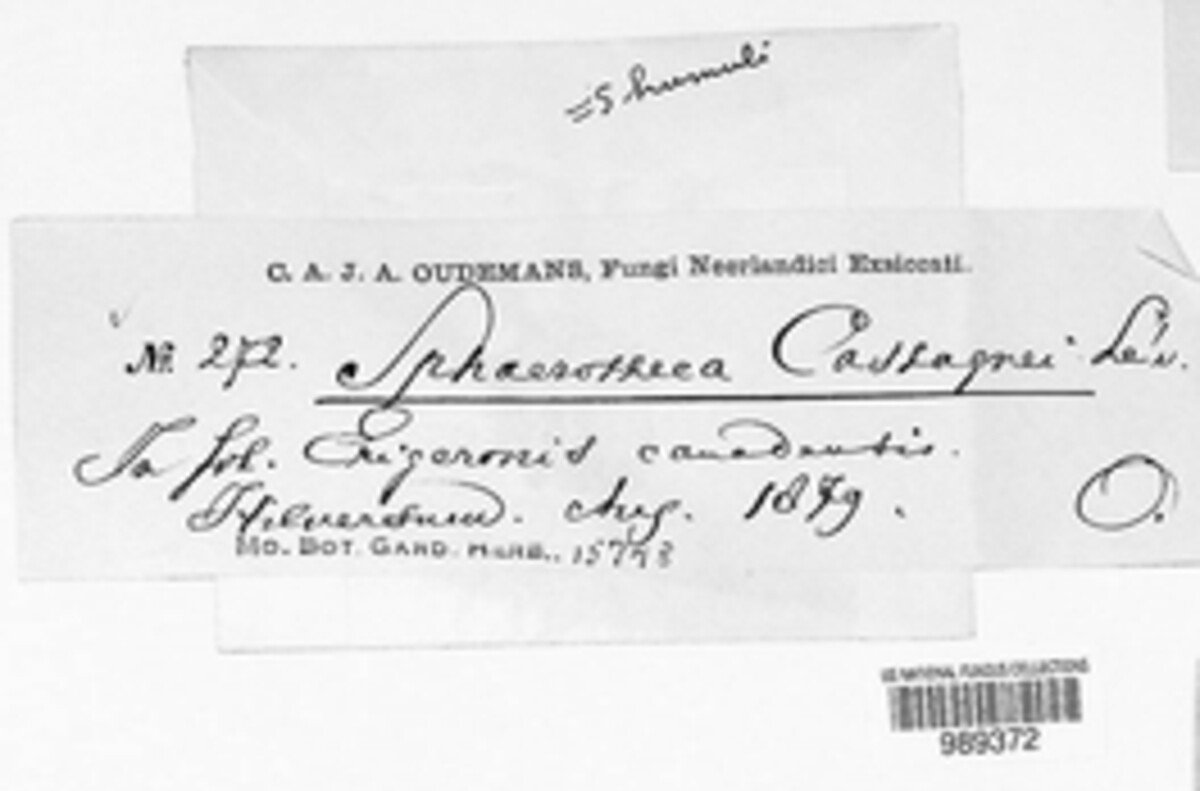 = S humuli
C. A. J. A. OUDEMANS, Fungi Neerlandici Exsiccati.
№ 272. Sphaerotheca Castagnei Lév.
In fol. Erigeronis canadensis.
Hilversum. Aug. 1879. O.
MO. BOT. GARD. HERB., 15778
US NATIONAL FUNGUS COLLECTIONS
989372